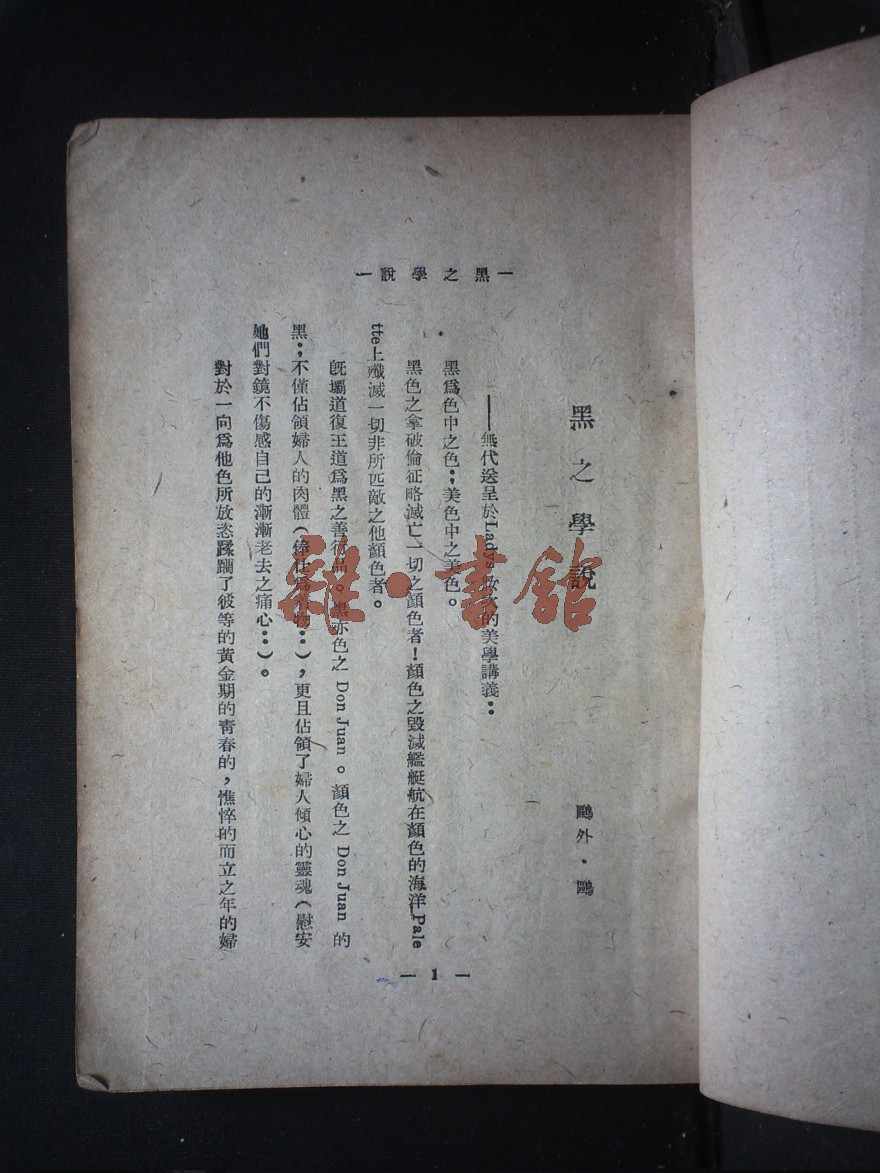 —黑之學說—
黑之學說
鷗外・鷗
——無代送呈於Ladys妝次的美學講義：
黑爲色中之色；美色中之美色。
黑色之拿破倫征略滅亡一切之顏色者！顏色之毀滅艦艇航在顏色的海洋Pale
tte上殲滅一切非所匹敵之他顏色者。
旣壩道復王道爲黑之善行品。黑亦色之Don Juan。顏色之Don Juan的
黑；不僅佔領婦人的肉體（爲物：），更且佔領了婦人傾心的靈魂（慰安
她們對鏡不傷感自己的漸漸老去之痛心：）。
對於一向爲他色所放恣蹂躪了彼等的黃金期的靑春的，憔悴的而立之年的婦
— 1 —
雜·書館